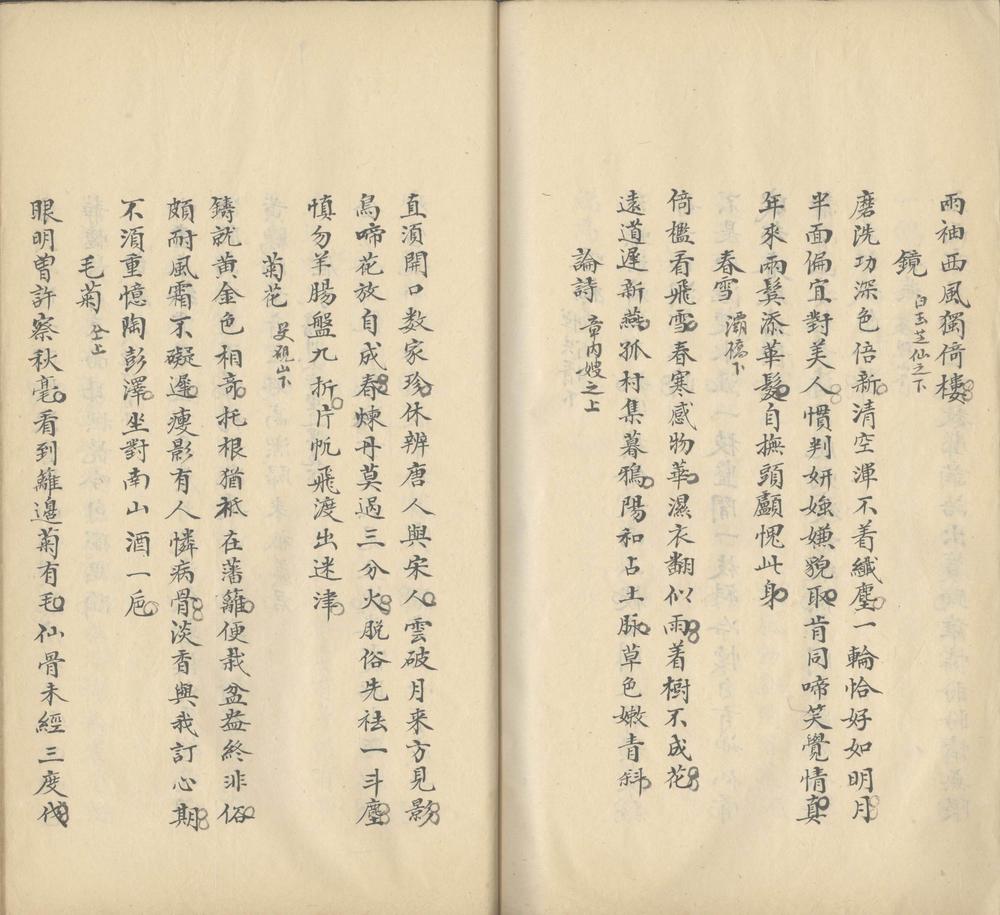 兩袖西風獨倚樓
鏡 白玉芝仙之下
磨洗功深色倍新清空渾不着纖塵一輪恰好如明月
半面偏宜對美人慣判妍媸嫌貌取肯同啼笑覺情真
年來兩鬂添華髮自撫頭顱愧此身
春雪 灞橋下
倚檻看飛雪春寒感物華濕衣翻似雨着樹不成花
遠道遲新燕孤村集暮鴉陽和占土脉草色嫩青斜
論詩 章內嫂之上
直須開口数家珍休辨唐人與宋人雲破月来方見影
鳥啼花放自成春煉丹莫過三分火脱俗先祛一斗塵
慎勿羊腸盤九折片帆飛渡出迷津
菊花 峴山下
鑄就黄金色相竒托根猶祗在藩籬便栽盆盎終非俗
頗耐風霜不礙遲瘦影有人憐病骨淡香與我訂心期
不須重憶陶彭澤坐對南山酒一卮
毛菊 仝上
眼明曽許察秋毫看到籬邊菊有毛仙骨未經三度伐